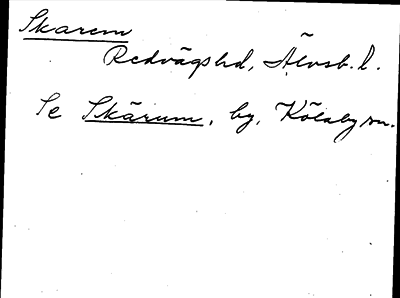 Skarem
Redvägshd, Älvsb. l.
Se Skärum, by, Kölaby sn.